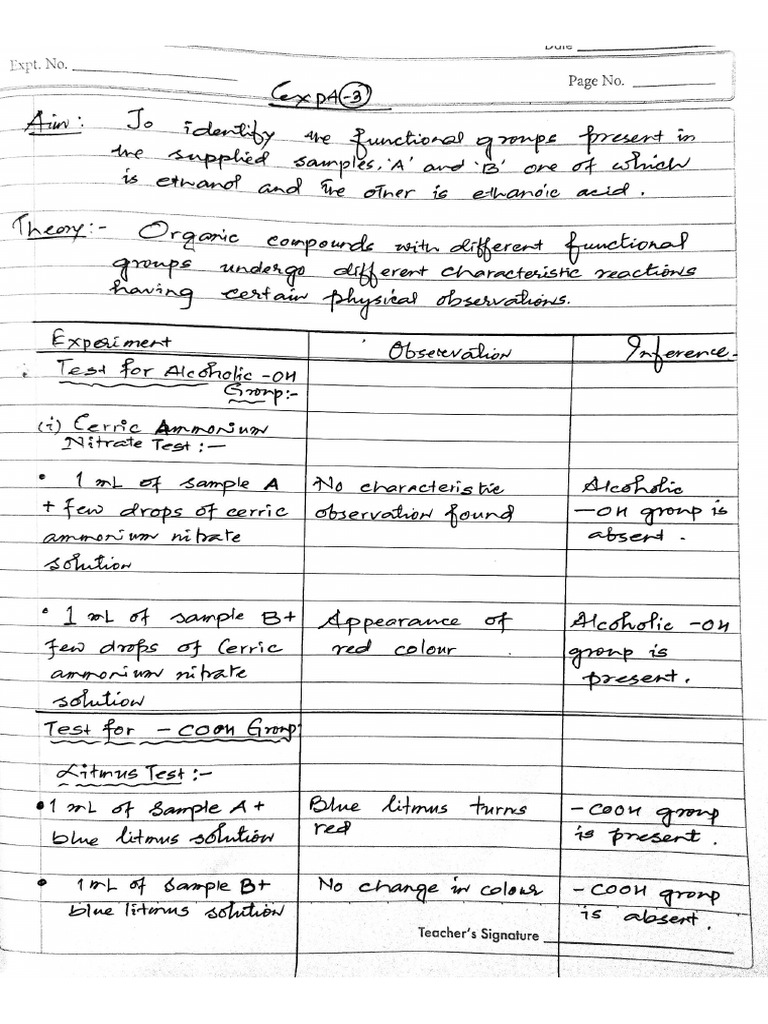 Date
Expt. No.
Page No.
Expt-3
Aim: To identify the functional groups present in
the supplied samples, 'A' and 'B' one of which
is ethanol and the other is ethanoic acid.
Theory:- Organic compounds with different functional
groups undergo different characteristic reactions
having certain physical observations.
Experiment
Observation
Inference
Test for Alcoholic -OH
Group:-
(i) Cerric Ammonium
Nitrate Test :-
• 1 mL of sample A
+ few drops of cerric
ammonium nitrate
solution
No characteristic
observation found
Alcoholic
-OH group is
absent.
• 1 mL of sample B+
few drops of Cerric
ammonium nitrate
solution
Appearance of
red colour
Alcoholic -OH
group is
present.
Test for -COOH Group
Litmus Test :-
• 1 mL of Sample A+
blue litmus solution
Blue litmus turns
red
-COOH group
is present.
• 1 mL of Sample B+
blue litmus solution
No change in colour
-COOH group
is absent.
Teacher's Signature